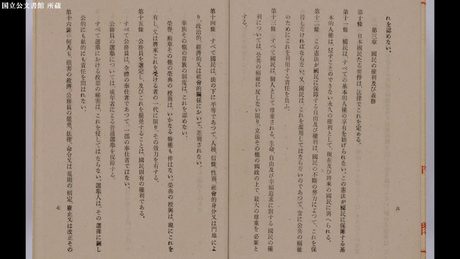 国立公文書館 所蔵
れを認めない。
第三章　國民の權利及び義務
第十條　日本國民たる要件は、法律でこれを定める。
第十一條　國民は、すべての基本的人權の享有を妨げられない。この憲法が國民に保障する基
本的人權は、侵すことのできない永久の權利として、現在及び將來の國民に與へられる。
第十二條　この憲法が國民に保障する自由及び權利は、國民の不斷の努力によつて、これを保
持しなければならない。又、國民は、これを濫用してはならないのであつて、常に公共の福祉
のためにこれを利用する責任を負ふ。
第十三條　すべて國民は、個人として尊重される。生命、自由及び幸福追求に對する國民の權
利については、公共の福祉に反しない限り、立法その他の國政の上で、最大の尊重を必要と
第十四條　すべて國民は、法の下に平等であつて、人種、信條、性別、社會的身分又は門地によ
り、政治的、經濟的又は社會的關係において、差別されない。
華族その他の貴族の制度は、これを認めない。
榮譽、勳章その他の榮典の授與は、いかなる特權も伴はない。榮典の授與は、現にこれを
有し、又は將來これを受ける者の一代に限り、その效力を有する。
第十五條　公務員を選定し、及びこれを罷免することは、國民固有の權利である。
すべて公務員は、全體の奉仕者であつて、一部の奉仕者ではない。
公務員の選擧については、成年者による普通選擧を保障する。
すべて選擧における投票の祕密は、これを侵してはならない。選擧人は、その選擇に關し
公的にも私的にも責任を問はれない。
第十六條　何人も、損害の救濟、公務員の罷免、法律、命令又は規則の制定、廢止又は改正その